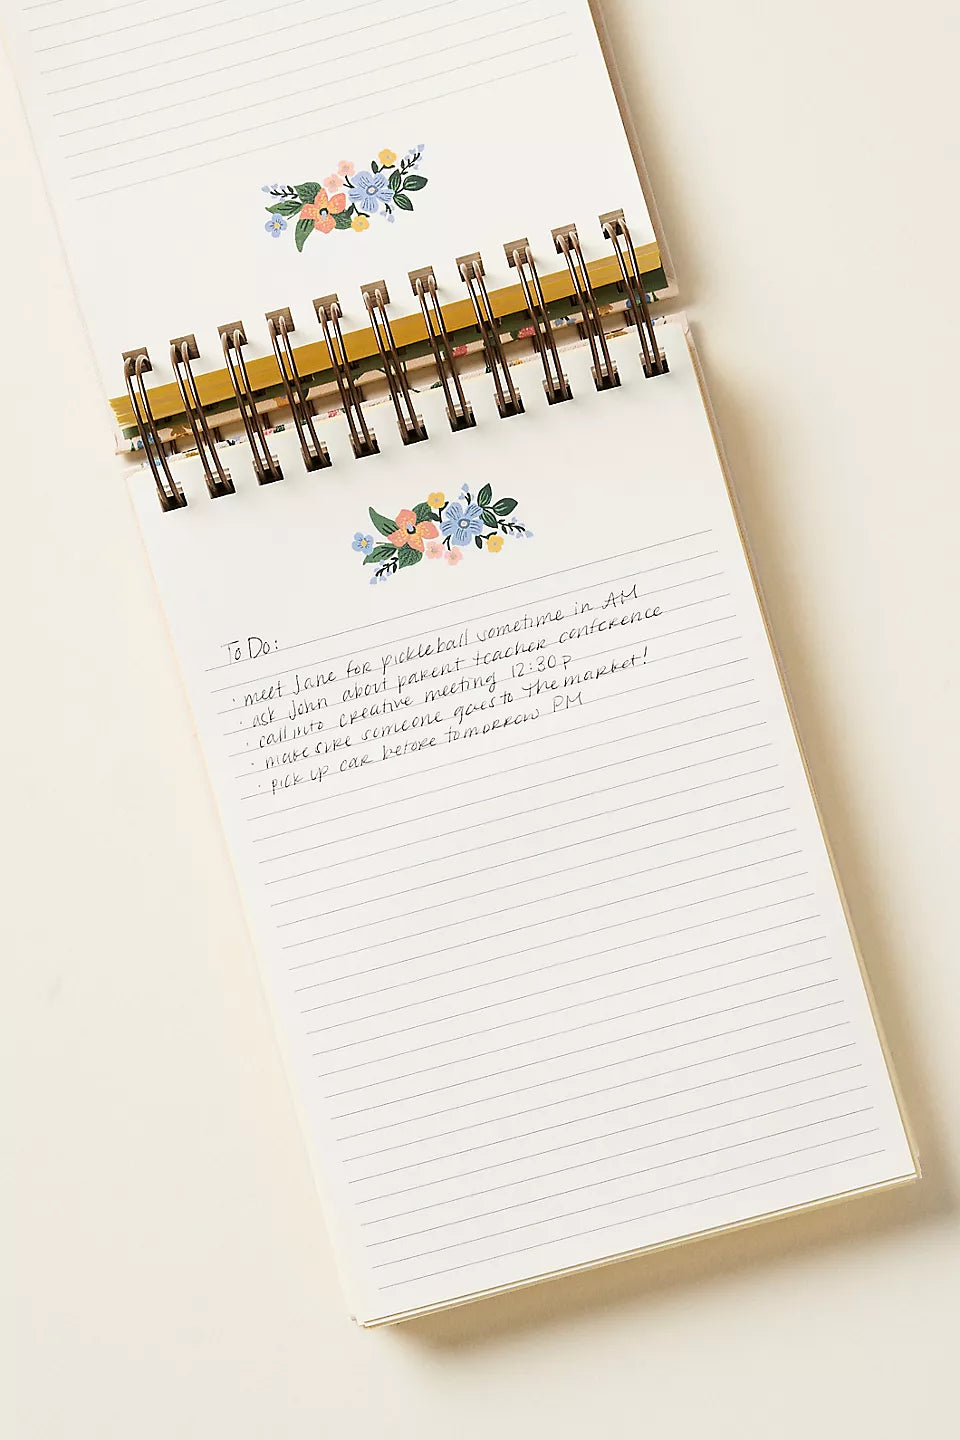 To Do:
· meet Jane for pickleball sometime in AM
· ask John about parent teacher conference
· call into creative meeting 12:30p
· make sure someone goes to the market!
· pick up car before tomorrow PM